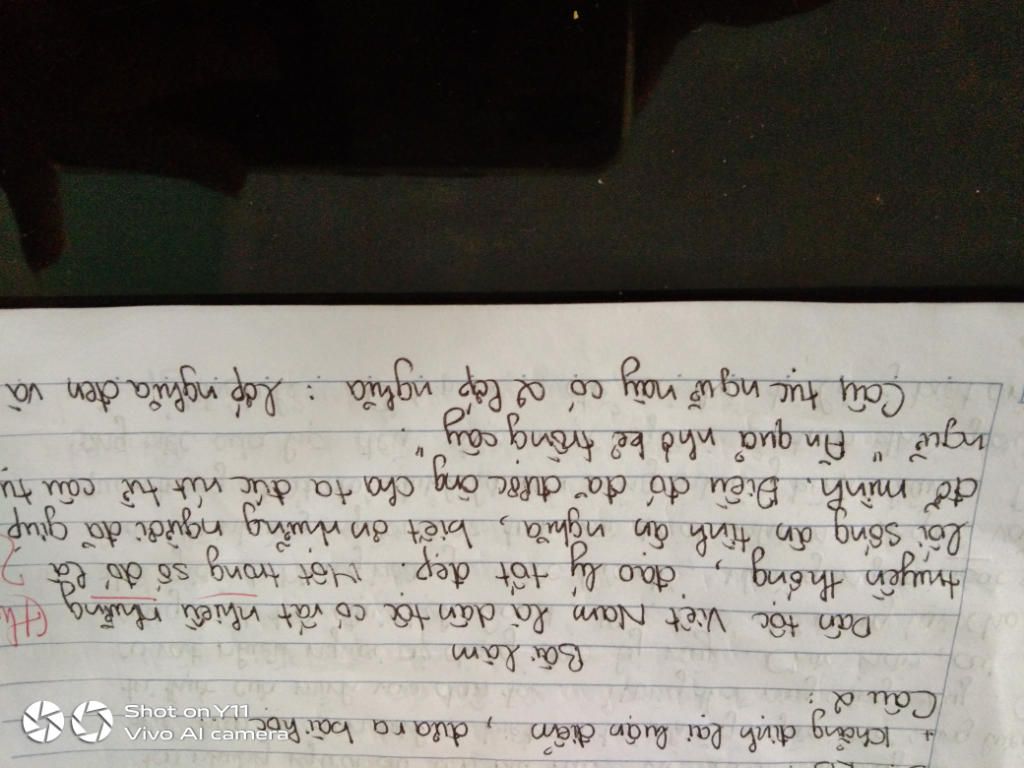 + Khẳng định lại luận điểm, đưa ra bài học.....
Câu 2:
Bài làm
Dân tộc Việt Nam là dân tộc có rất nhiều những
truyền thống, đạo lý tốt đẹp. Một trong số đó là
lối sống ân tình ân nghĩa, biết ơn những người đã giúp
đỡ mình. Điều đó đã được ông cha ta đúc rút từ câu tục
ngữ "Ăn quả nhớ kẻ trồng cây".
Câu tục ngữ này có 2 lớp nghĩa: Lớp nghĩa đen và
Shot on Y11
Vivo AI camera